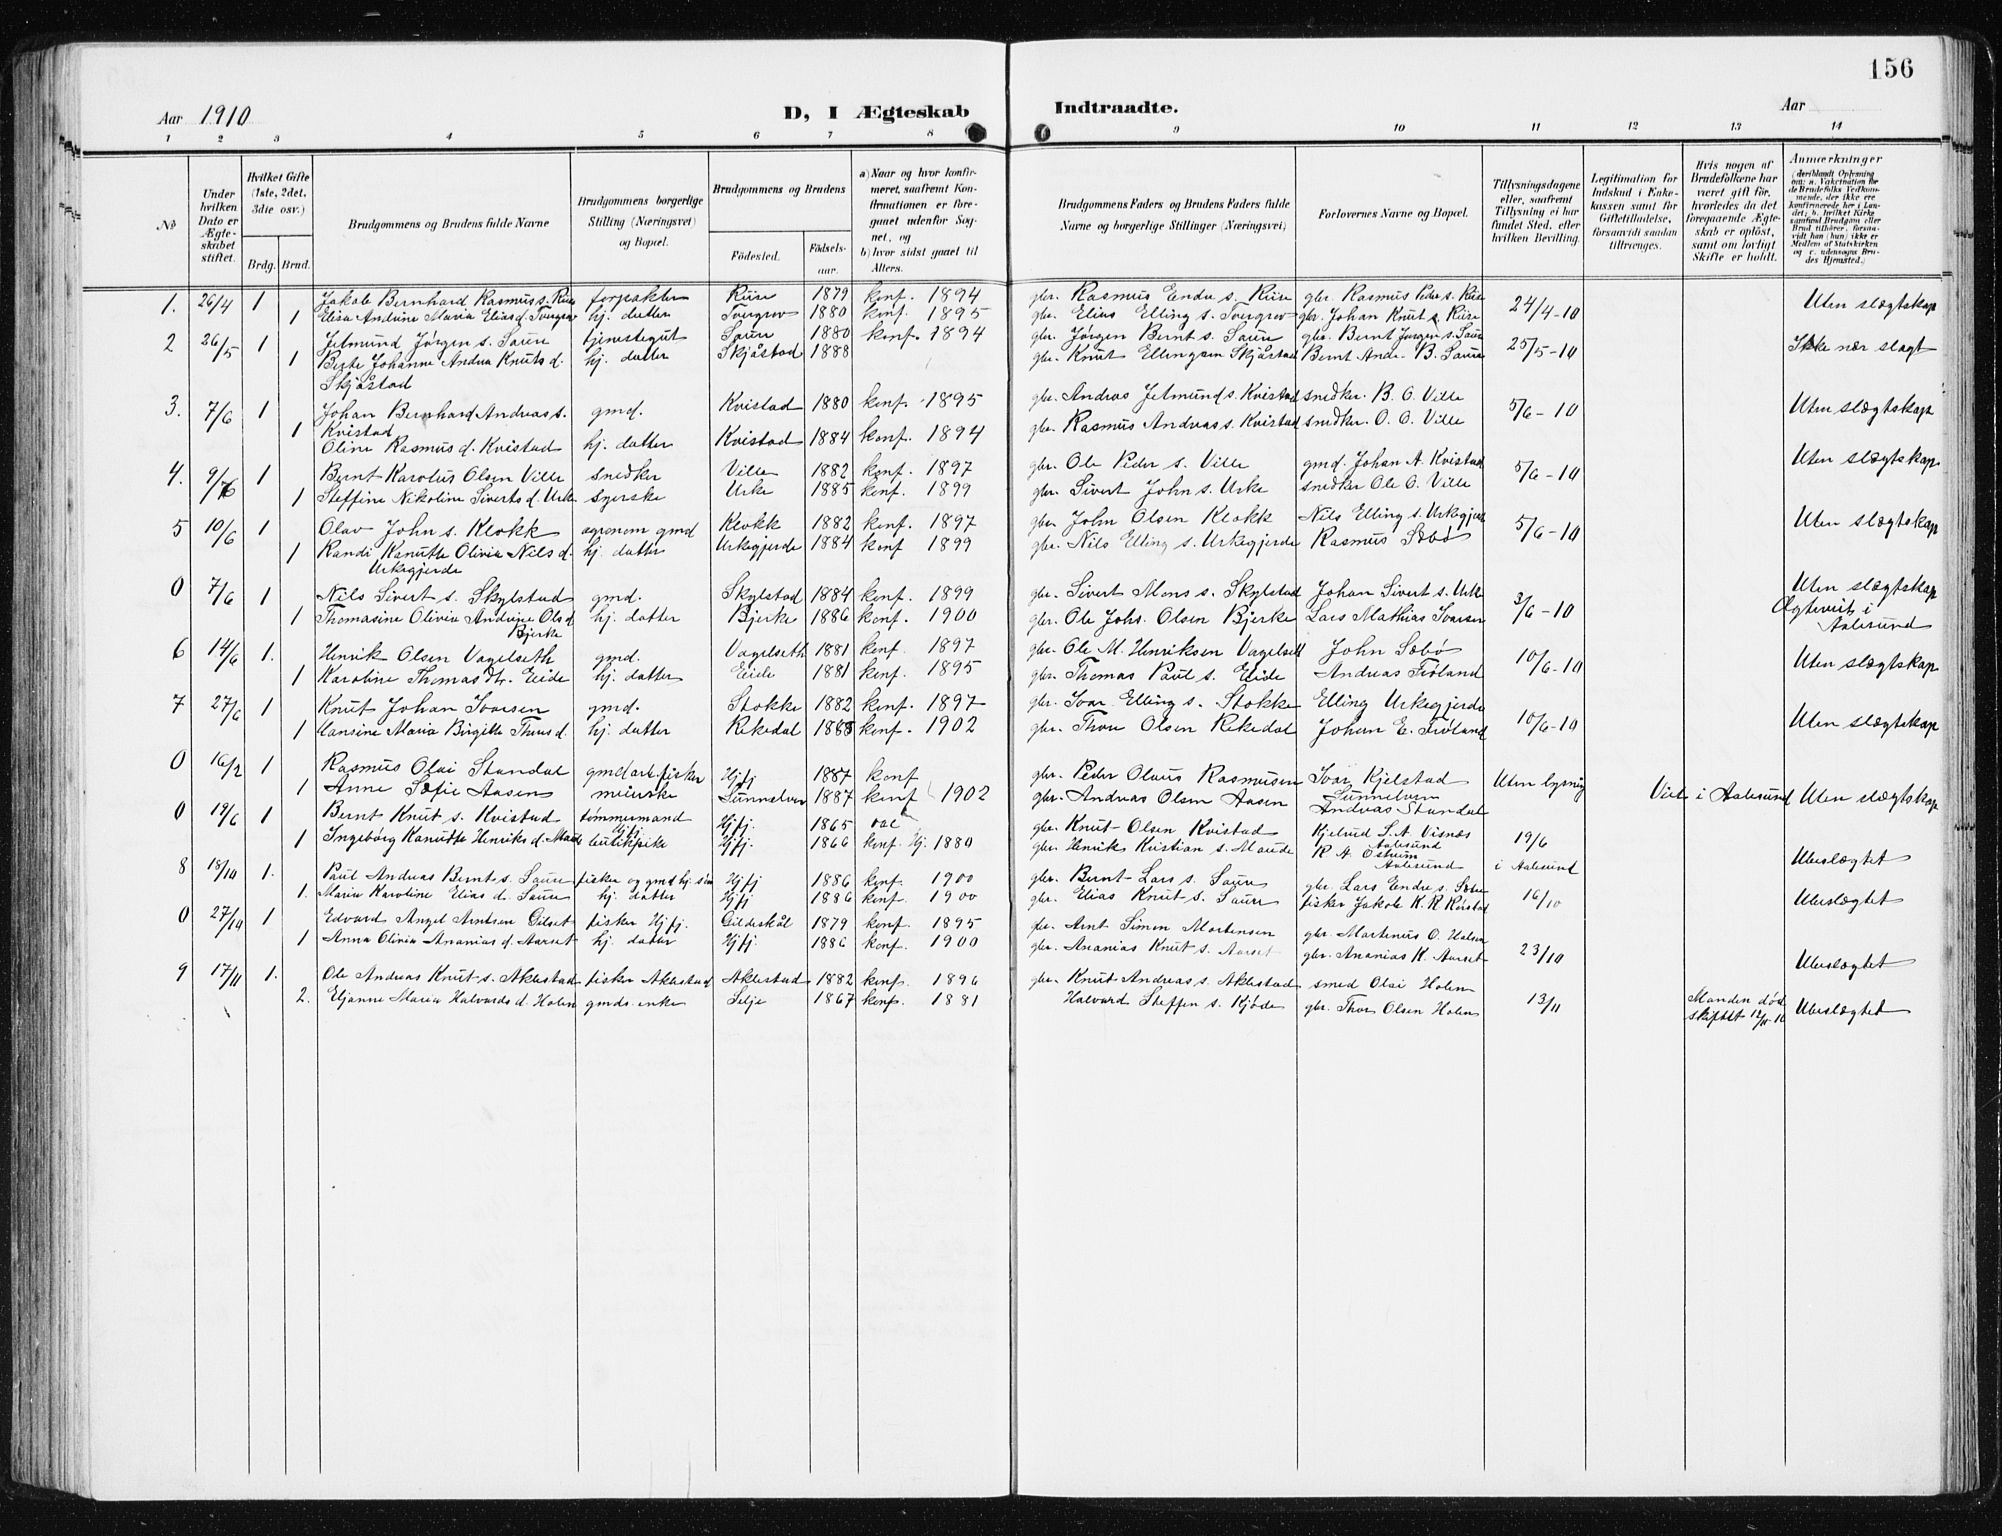 156
Aar 1910
D, I Ægteskab
Indtraadte.
Aar
1 2 3 4 5 6 7 8 9 10 11 12 13 14
No
Under hvilken Dato er Ægteskabet stiftet.
Hvilket Gifte (1ste, 2det. 3die osv.)
Brdg. Brud.
Brudgommens og Brudens fulde Navne
Brudgommens borgerlige Stilling (Næringsvei) og Bopæl.
Brudgommens og Brudens
Fødested. Fødselsaar.
a) Naar og hvor konfirmeret, saafremt Konfirmationen er foregaaet udenfor Sognet, og
b) hvor sidst gaaet til Alters.
Brudgommens Faders og Brudens Faders fulde Navne og borgerlige Stillinger (Næringsvei)
Forlovernes Navne og Bopæl.
Tillysningsdagene eller, saafremt Tillysning ei har fundet Sted, efter hvilken Bevilling.
Legitimation for Indskud i Enkekassen samt for Giftetilladelse, forsaavidt saadan tiltrænges.
Hvis nogen af Brudefolkene har været gift før, hvorledes da det foregaaende Ægteskab er opløst, samt om lovligt Skifte er holdt.
Anmærkninger
(deriblandt Oplysning om: a. Vaccination for de Brudefolks Vedkommende, der ikke ere konfirmerede her i Landet; b. hvilket Kirkesamfund Brudgom eller Brud tilhører, forsaavidt han (hun) ikke er Medlem af Statskirken og c. udensogns Brudes Hjemsted.)
1. 26/4 1 Jakob Bernhard Rasmus s. Riise forpakter Riise 1879 konf. 1894 gbr. Rasmus Endre s. Riise gbr. Rasmus Peder s. Riise 24/4-10 Uten slægtskap
1 Elisa Andrine Maria Elias d. Tvergrov hj. datter Tvergrov 1880 konf. 1895 gbr. Elias Elling s. Tvergrov gbr. Johan Knut s. Riise
2 26/5 1 Jetmund Jørgen s. Saure tjenestegut Saure 1880 konf. 1894 gbr. Jørgen Bernt s. Saure gbr. Bernt Jørgen s. Saure 25/5-10 Ikke nær slægt
1 Berte Johanne Andrea Knuts d. hj. datter Skjåstad 1888 gbr. Knut Ellingsen Skjåstad Bernt Andr. B. Saure
Skjåstad
3. 7/6 1 Johan Bernhard Andreas s. gmd. Kvistad 1880 konf. 1895 gbr. Andreas Jetmund s. Kvistad snedker. B. O. Ville 5/6-10 Uten slægtskap
Kvistad
1 Oline Rasmus d. Kvistad hj. datter Kvistad 1884 konf. 1894 gbr. Rasmus Andreas s. Kvistad snedker. O. O. Ville
4. 9/6 1 Bernt Karolus Olsen Ville snedker Ville 1882 konf. 1897 gbr. Ole Peder s. Ville gmd. Johan A. Kvistad 5/6-10 Uten slægtskap
1 Steffine Nikoline Siverts d. Urke syerske Urke 1885 konf. 1899 gbr. Sivert John s. Urke snedker Ole O. Ville
5 10/6 1 Olav John s. Klokk agronom gmd Klokk 1882 konf. 1897 gbr. John Olsen Klokk Nils Elling s. Urkegjerde 5/6-10 Uten slægtskap
1 Randi Kanutte Olivia Nils d. hj. datter Urkegjerde 1884 konf 1899 gbr. Nils Elling s. Urkegjerde Rasmus Sæbø
Urkegjerde
0 7/6 1 Nils Sivert s. Skylstad gmd. Skylstad 1884 konf. 1899 gbr. Sivert Mons s. Skylstad Johan Sivert s. Urke 3/6-10 Uten slægtskap
1 Thomasine Olivia Andrine Ols d. hj. datter Bjerke 1886 konf. 1900 gbr. Ole Johs. Olsen Bjerke Lars Mathias Ivarsen Ægteviet i
Bjerke Aalesund
6 14/6 1. Henrik Olsen Vagelseth gmd. Vagelseth 1881 konf. 1897 gbr. Ole M. Henriksen Vagelseth John Sæbø 10/6-10 Uten slægtskap
1 Karoline Thomas dtr. Eide hj. datter Eide 1881 konf. 1895 gbr. Thomas Paul s. Eide Andreas Tioland
7 27/6 1 Knut Johan Ivarsen gmd. Stokke 1882 konf. 1897 gbr. Ivar Elling s. Stokke Elling Urkegjerde 10/6-10 Uten slægtskap
1 Hansine Maria Birgitte Thors d. hj. datter Rekedal 1888 konf. 1902 gbr. Thore Olsen Rekedal Johan E. Tioland
0 16/2 1 Rasmus Olai Standal gmd arb. fisker Hjfj 1887 konf gbr. Peder Olaus Rasmussen Ivar Kjelstad Uten lysning Viet i Aalesund Uten slægtskap
1 Anne Sofie Aasen meierske Sunnelven 1887 konf 1902 gbr. Andreas Olsen Aasen Sunnelven
Andreas Standal
0 19/6 1 Bernt Knut s. Kvistad tømmermand Hjfj. 1865 vac gbr. Knut Olsen Kvistad Kjelvid S. A. Visnæs 19/6
Hjfj. Aalesund
1 Ingeborg Kanutte Henriks d. Maude butikpike Hjfj. 1866 konf. Hj. 1880 gbr. Henrik Kristian s. Maude R A Østrem i Aalesund Ubeslægtet
Aalesund
8 18/10 1. Paul Andreas Bernt s. Saure fisker og gmd hj. søn Hjfj 1886 konf. 1900 gbr. Bernt Lars s. Saure gbr. Lars Endre s. Sæbø 16/10 Ubeslægtet
1. Maria Karoline Elias d. Saure hj. datter Hjfj 1886 konf. 1900 gbr. Elias Knut s. Saure fisker Jakob K. R. Rørstad
0 27/10 1 Edvard Angel Arntsen Gilset fisker Hjfj. Gildeskål 1879 konf. 1895 gbr. Arnt Simon Mortensen gbr. Martinus O. Halsen 23/10 Ubeslægtet
1 Anna Olivia Ananias d. Aarset hj. datter Hjfj 1886 konf. 1900 gbr. Ananias Knut s. Aarset gbr. Ananias K. Aarset
9 17/11 1. Ole Andreas Knut s. Aklestad fisker Aklestad Aklestad 1882 konf. 1896 gbr. Knut Andreas s. Aklestad smed Olai Holen 13/11 Ubeslægtet
2. Eljanne Maria Halvards d. Holen gmds. enke Selje 1867 konf. 1881 Halvard Steffen s. Kjøde gbr. Thor Olsen Holen Manden død
skiftet 12/11-10